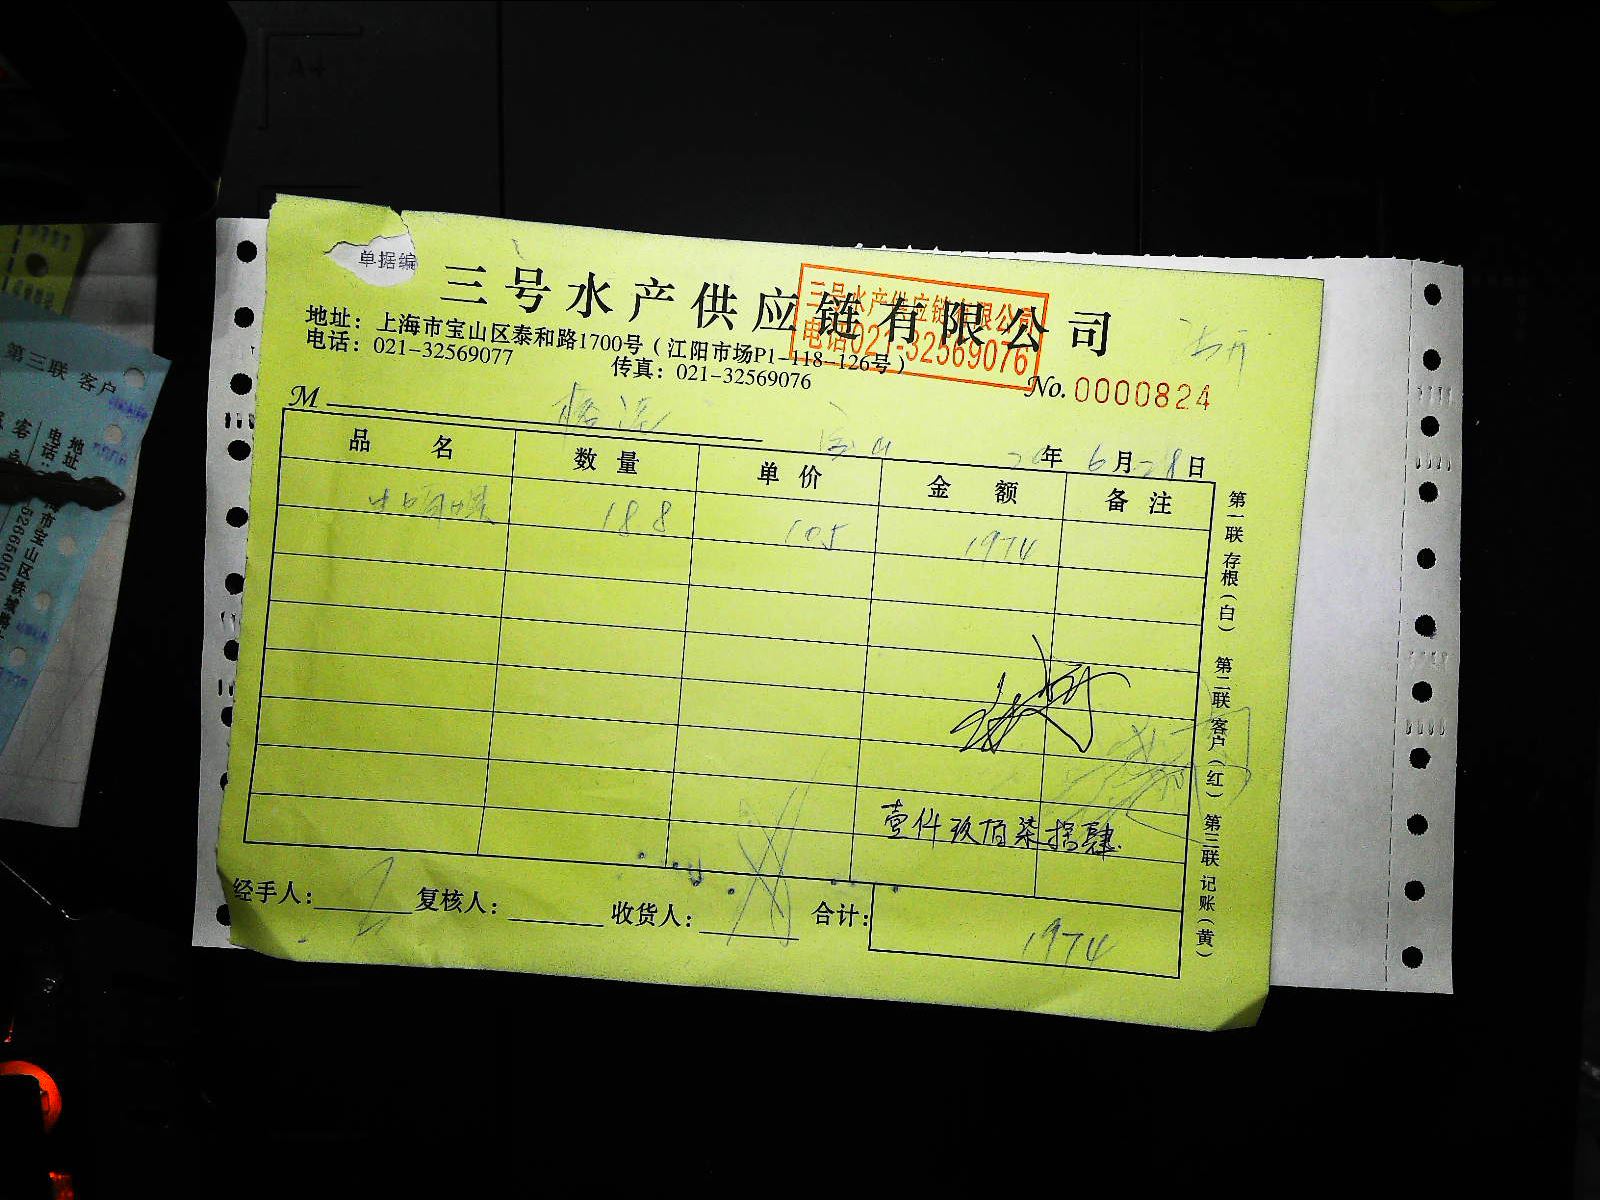 单据编
三号水产供应链有限公司
三号水产供应链有限公司
电话021-32569076
地址：上海市宝山区泰和路1700号（江阳市场P1-118-126号）
电话：021-32569077
传真：021-32569076
No. 0000824
M
年 6月28日
品名 数量 单价 金额 备注
188 105 1974
壹仟玖佰柒拾肆
经手人： 复核人： 收货人： 合计： 1974
第一联 存根（白） 第二联 客户（红） 第三联 记账（黄）
第三联 客户
地址
电话：